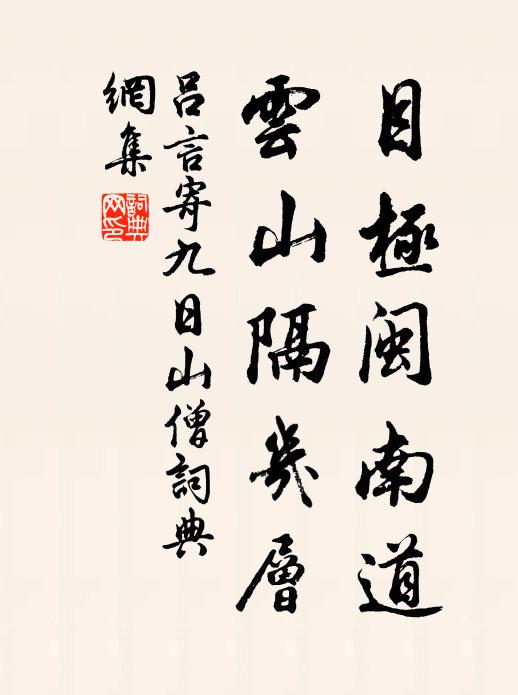 目極閩南道
雲山隔幾層
吕言寄九日山僧詞典
網集
詞典
网印